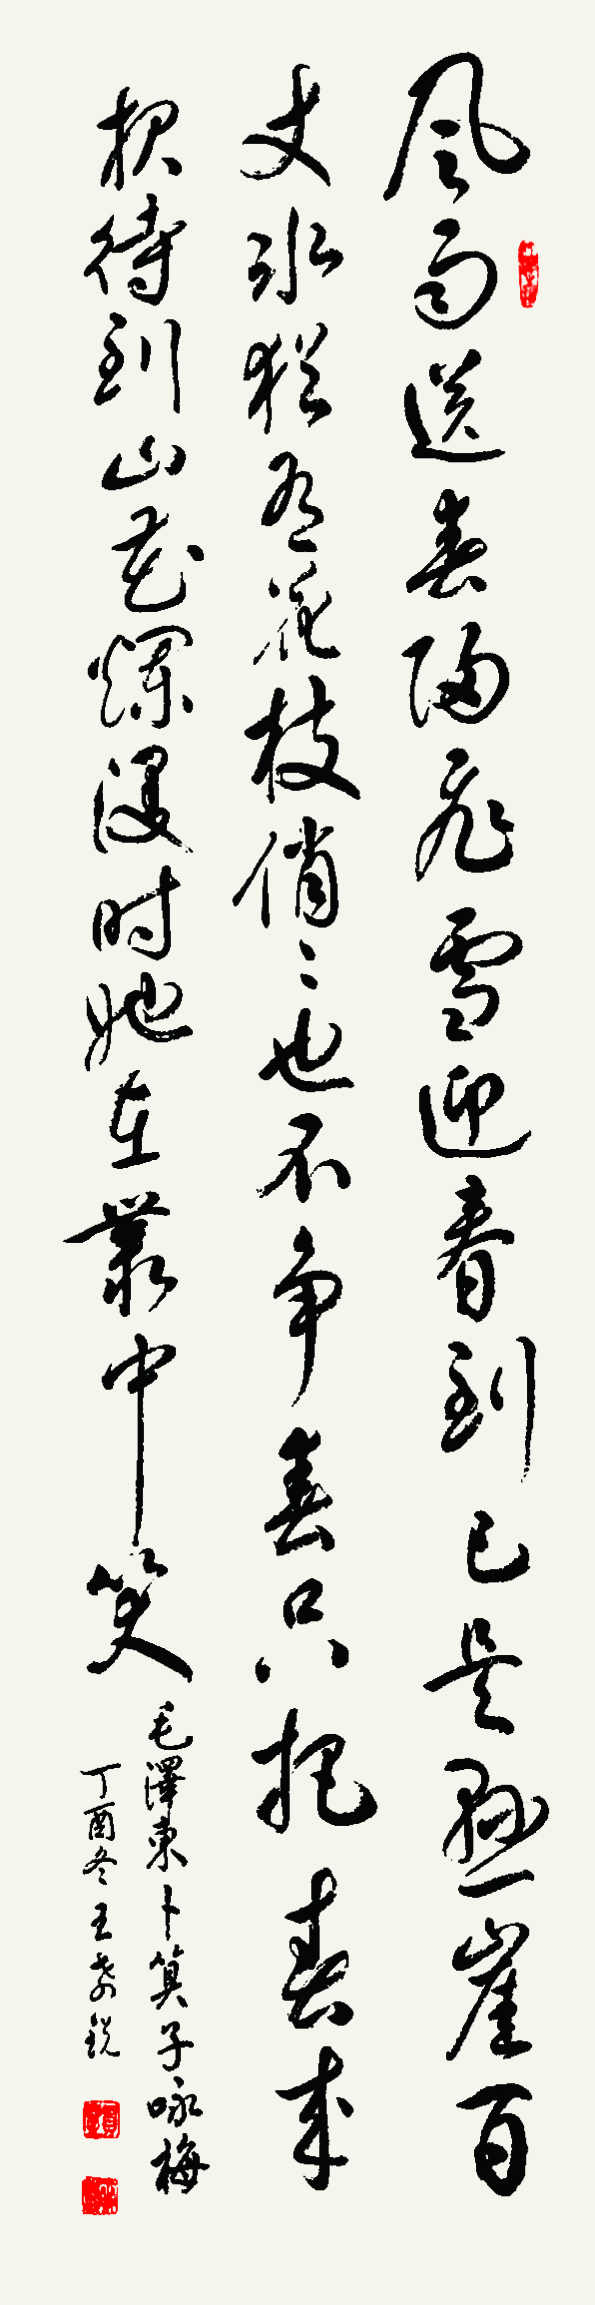 风雨送春归飞雪迎春到已是悬崖百
丈冰犹有花枝俏〻也不争春只把春来
报待到山花烂漫时她在叢中笑
毛澤東卜算子咏梅
丁酉冬王